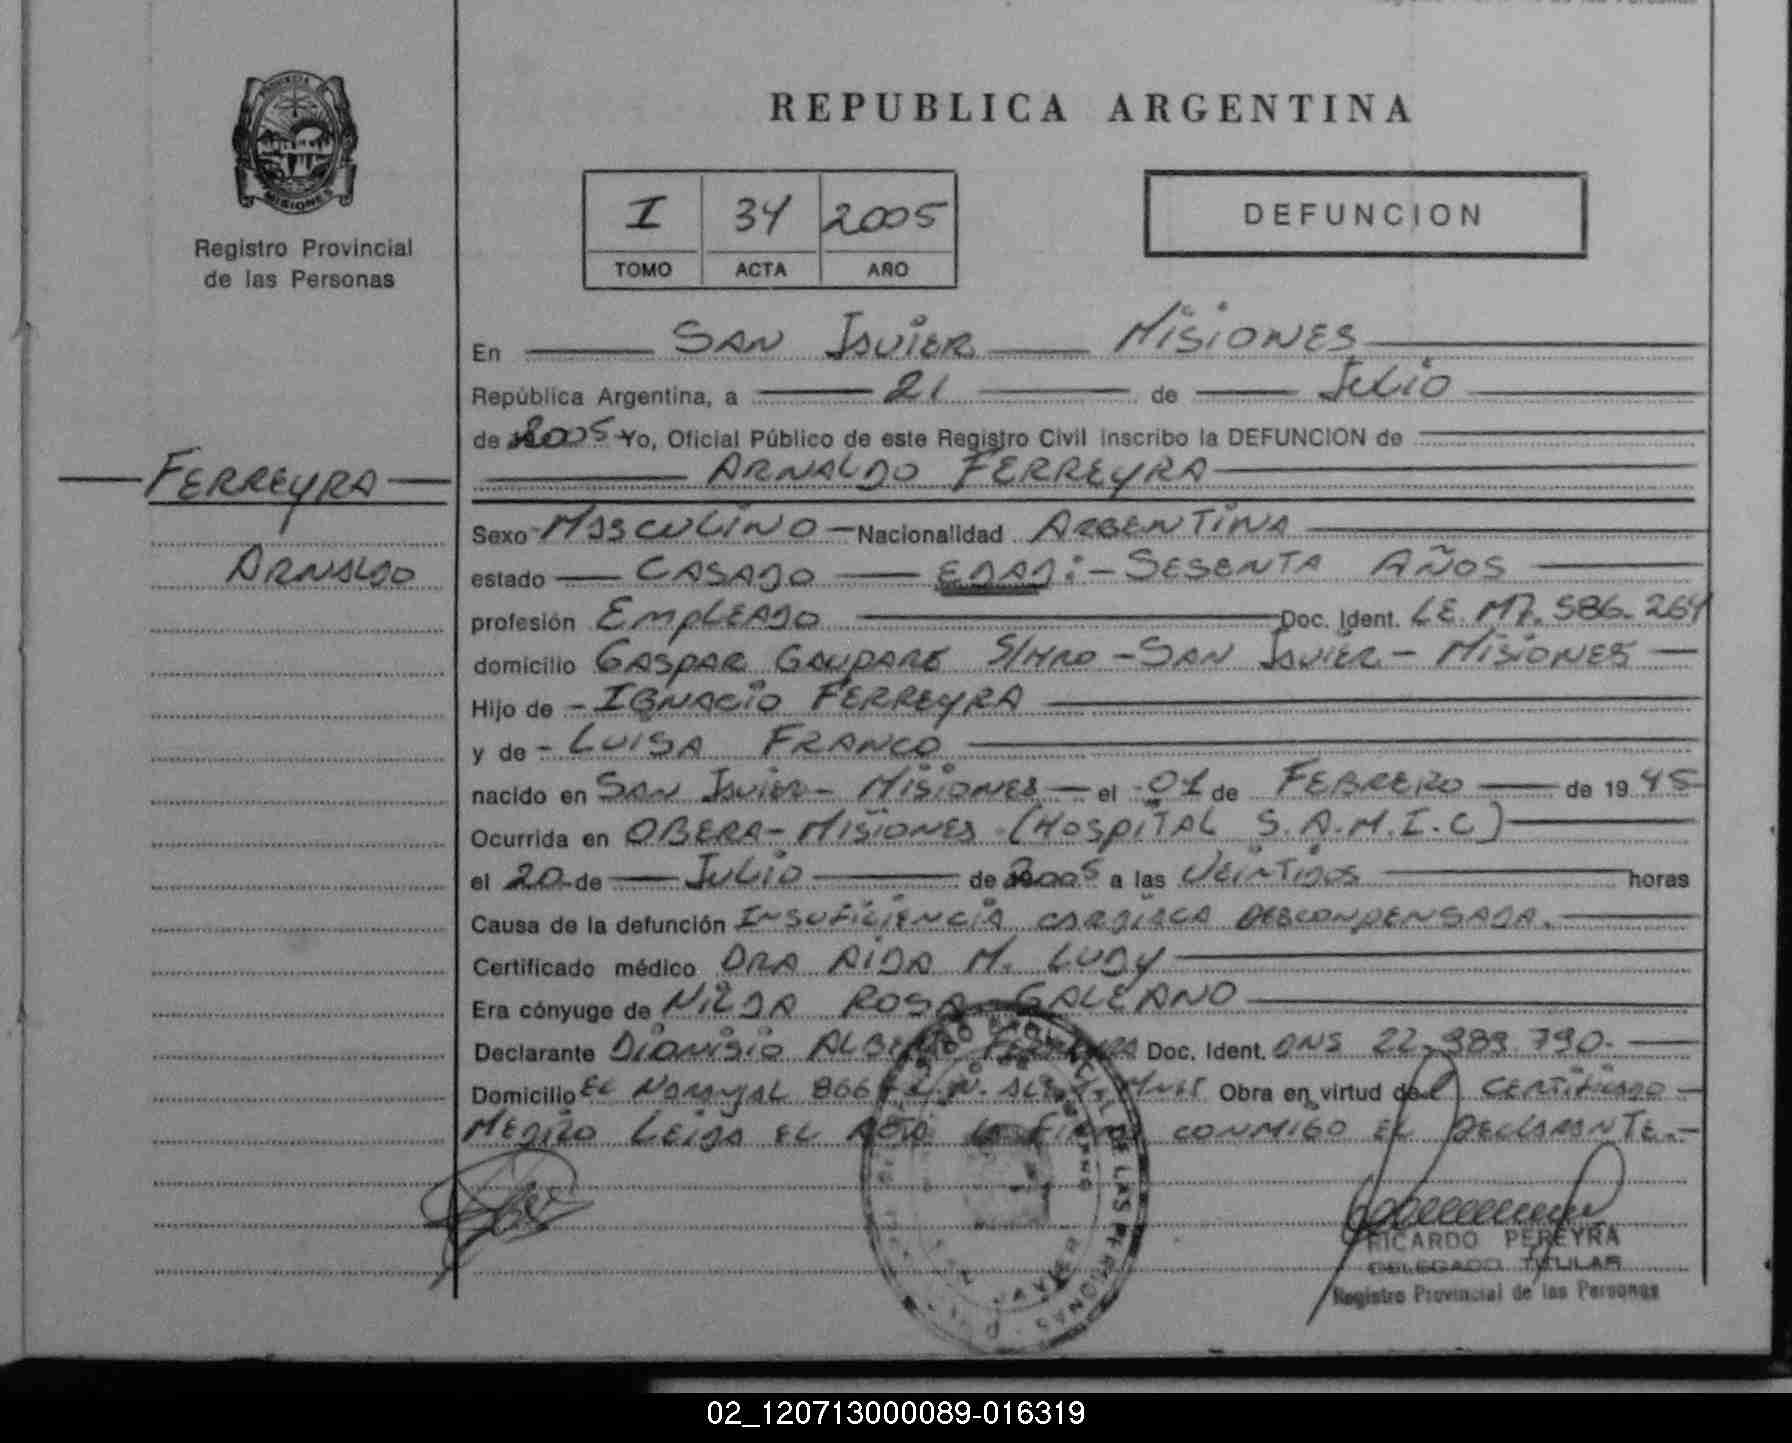 REPUBLICA ARGENTINA
PROVINCIA DE
MISIONES
Registro Provincial
de las Personas
I 34 2005
TOMO ACTA AÑO
DEFUNCION
En SAN JAVIER MISIONES
República Argentina, a 21 de JULIO
de 2005 Yo, Oficial Público de este Registro Civil inscribo la DEFUNCION de
FERREYRA
ARNALDO
ARNALDO FERREYRA
Sexo MASCULINO Nacionalidad ARGENTINA
estado CASADO EDAD:- SESENTA AÑOS
profesión EMPLEADO Doc. Ident. LE. M7.586.264
domicilio GASPAR S/NRO - SAN JAVIER - MISIONES
Hijo de - IGNACIO FERREYRA
y de - LUISA FRANCO
nacido en SAN JAVIER - MISIONES - el 01 de FEBRERO de 1945
Ocurrida en OBERA - MISIONES (HOSPITAL S.A.M.I.C)
el 20 de JULIO de 2005 a las VEINTIDOS horas
Causa de la defunción INSUFICIENCIA CARDIACA DESCONPENSADA.
Certificado médico DRA AIDA M. LUDY
Era cónyuge de NILDA ROSA GALEANO
Declarante DIONISIO ALBERTO FERREYRA Doc. Ident. DNI 22.989.790.
Domicilio EL NARANJAL 866 Obra en virtud del CERTIFICADO
MEDICO LEIDA EL ACTA LA FIRMA CONMIGO EL DECLARANTE.-
DE LAS PERSONAS
JAVIER
RICARDO PEREYRA
DELEGADO TITULAR
Registro Provincial de las Personas
02_120713000089-016319